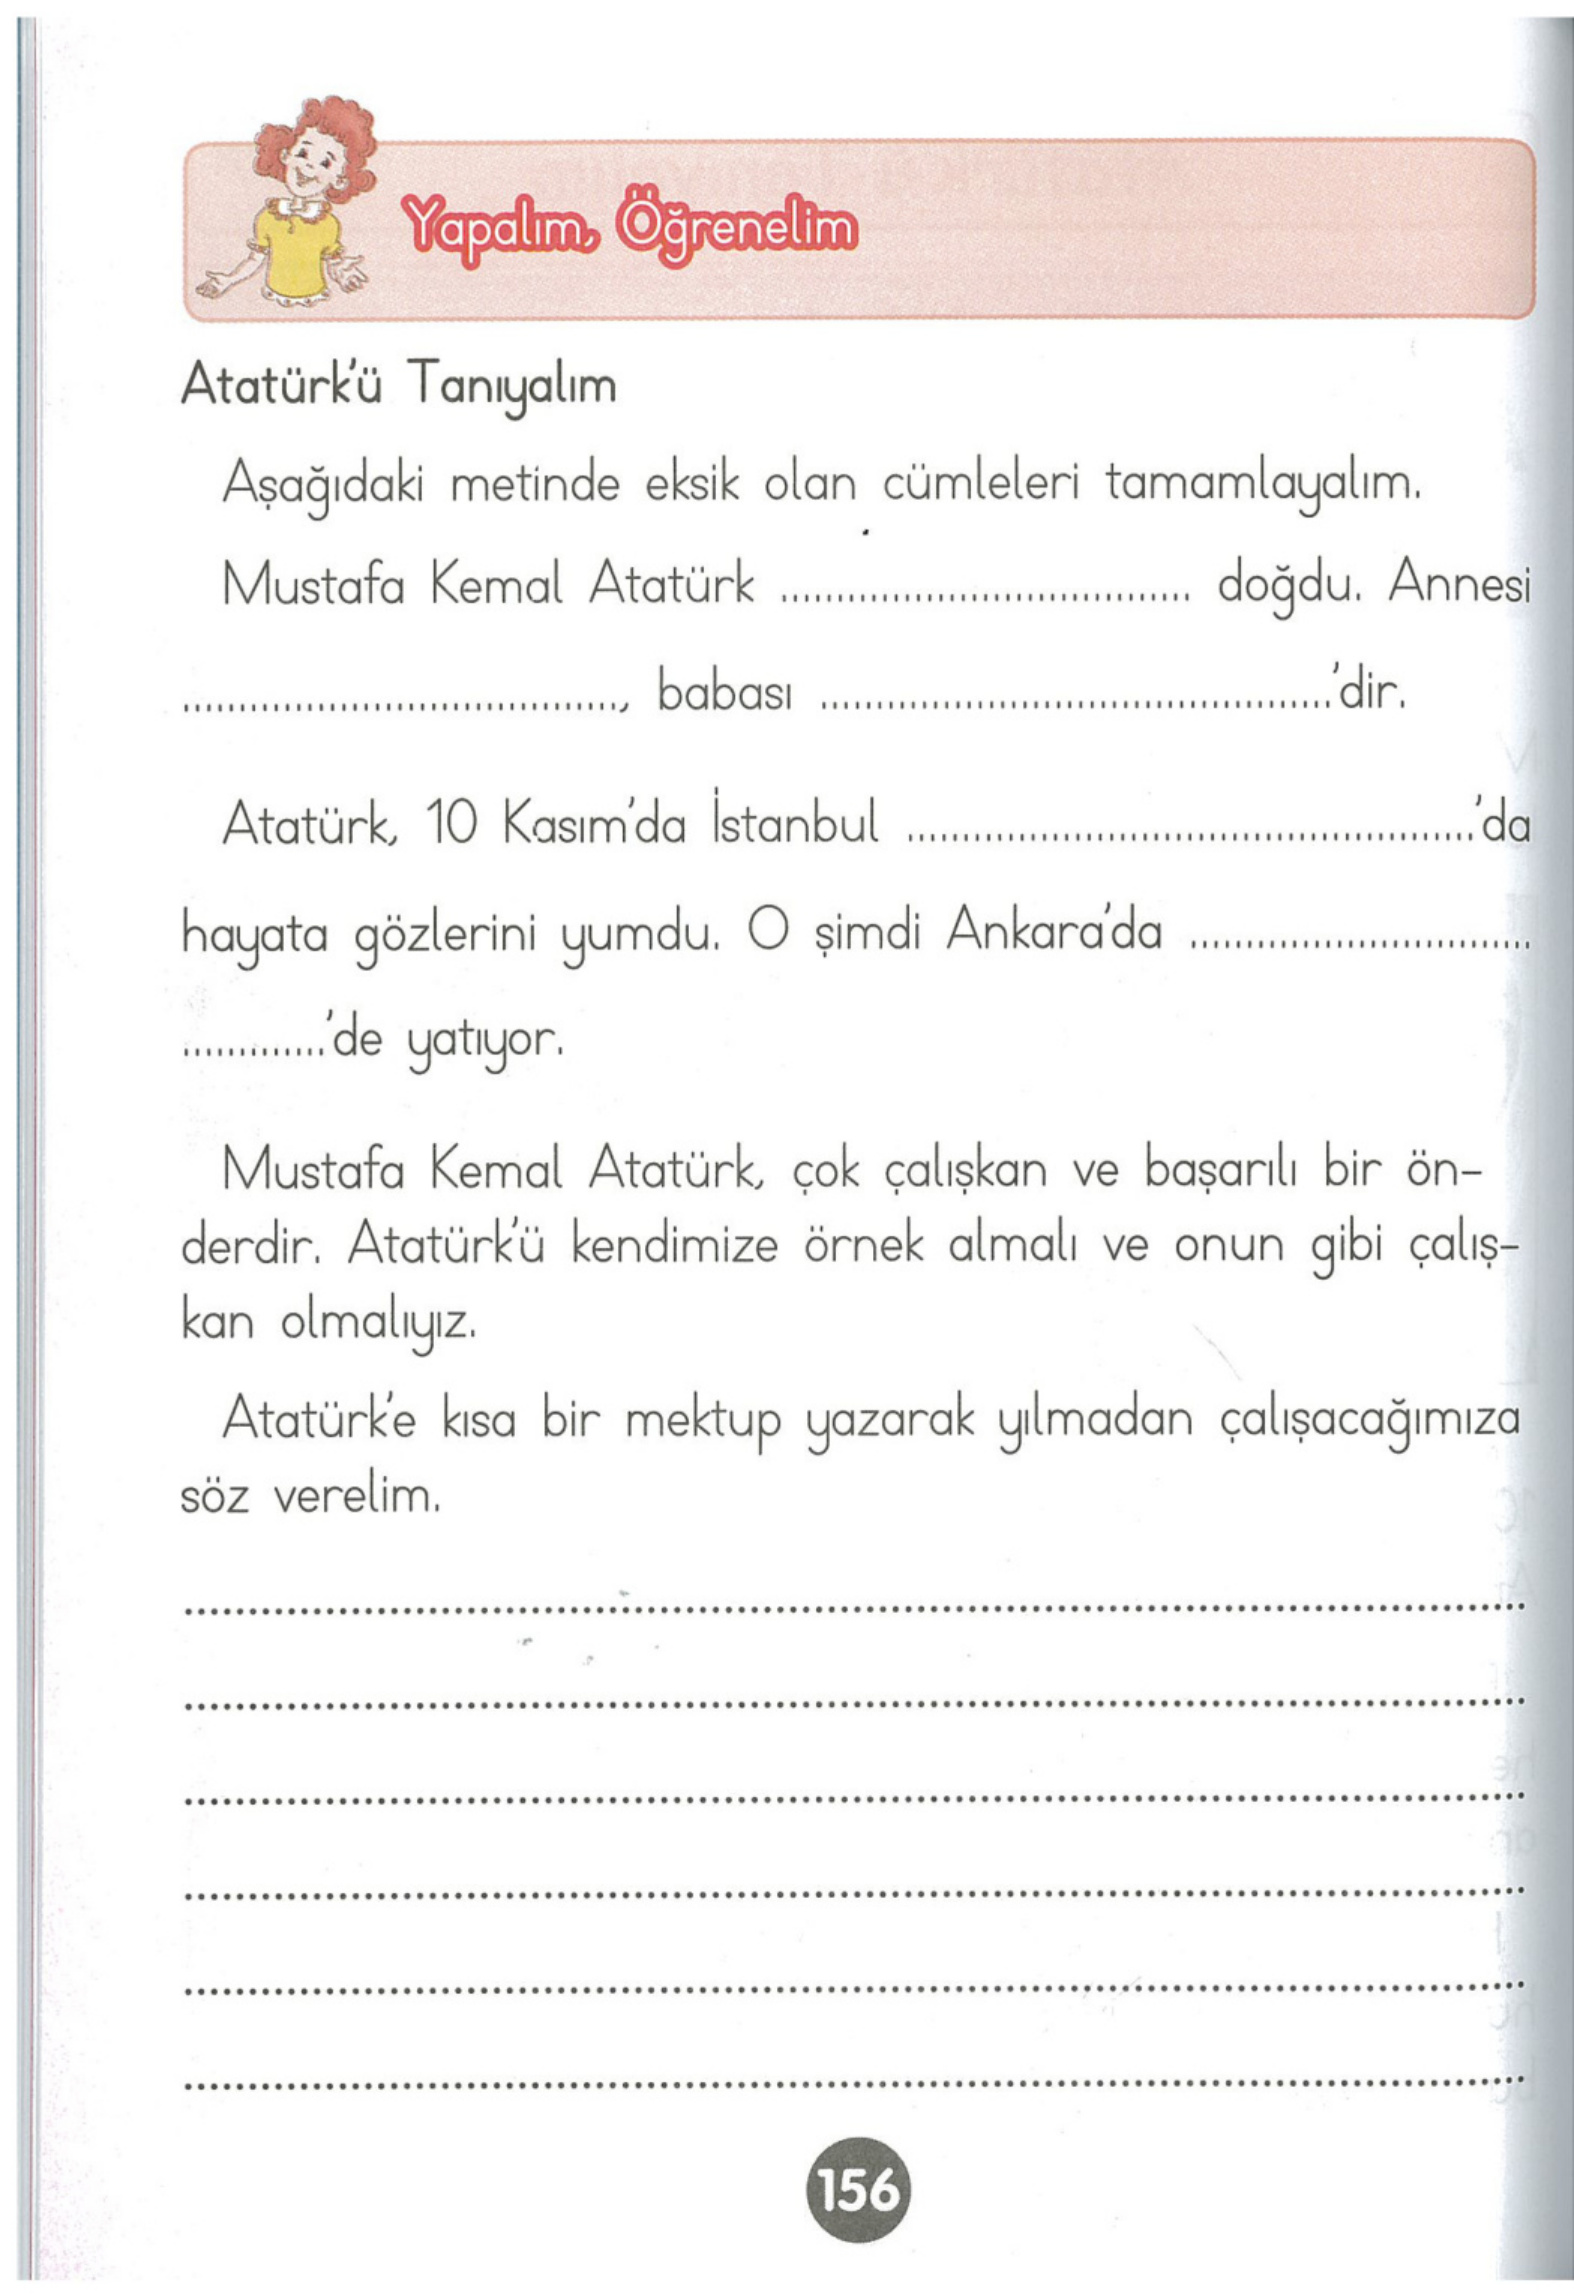 Yapalım, Öğrenelim
Atatürk'ü Tanıyalım
Aşağıdaki metinde eksik olan cümleleri tamamlayalım.
Mustafa Kemal Atatürk ..................................... doğdu. Annesi
......................................., babası ..............................................'dir.
Atatürk, 10 Kasım'da İstanbul ...................................................'da
hayata gözlerini yumdu. O şimdi Ankara'da ...............................
.............'de yatıyor.
Mustafa Kemal Atatürk, çok çalışkan ve başarılı bir ön-
derdir. Atatürk'ü kendimize örnek almalı ve onun gibi çalış-
kan olmalıyız.
Atatürk'e kısa bir mektup yazarak yılmadan çalışacağımıza
söz verelim.
156